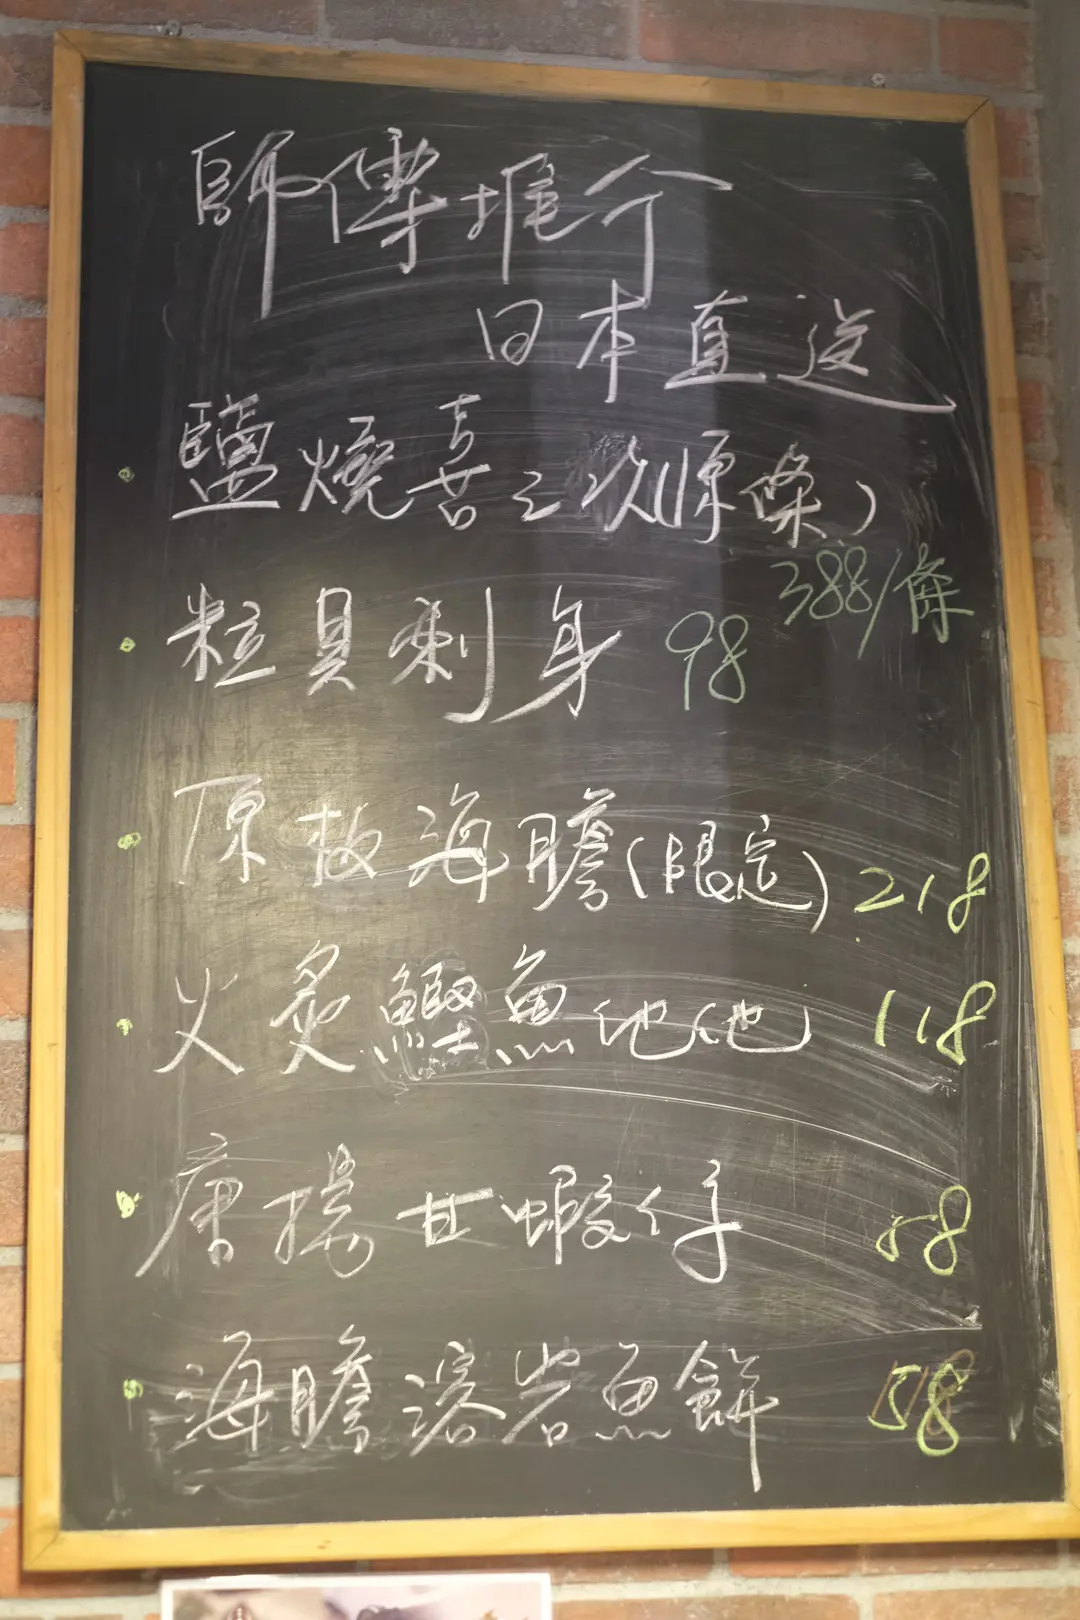 師傅推介
日本直送
鹽燒喜之次(原條)
388/條
粒貝刺身 98
原板海膽(限定) 218
火炙鰹魚他他 118
唐揚甘蝦仔 58
海膽溶岩魚餅 58